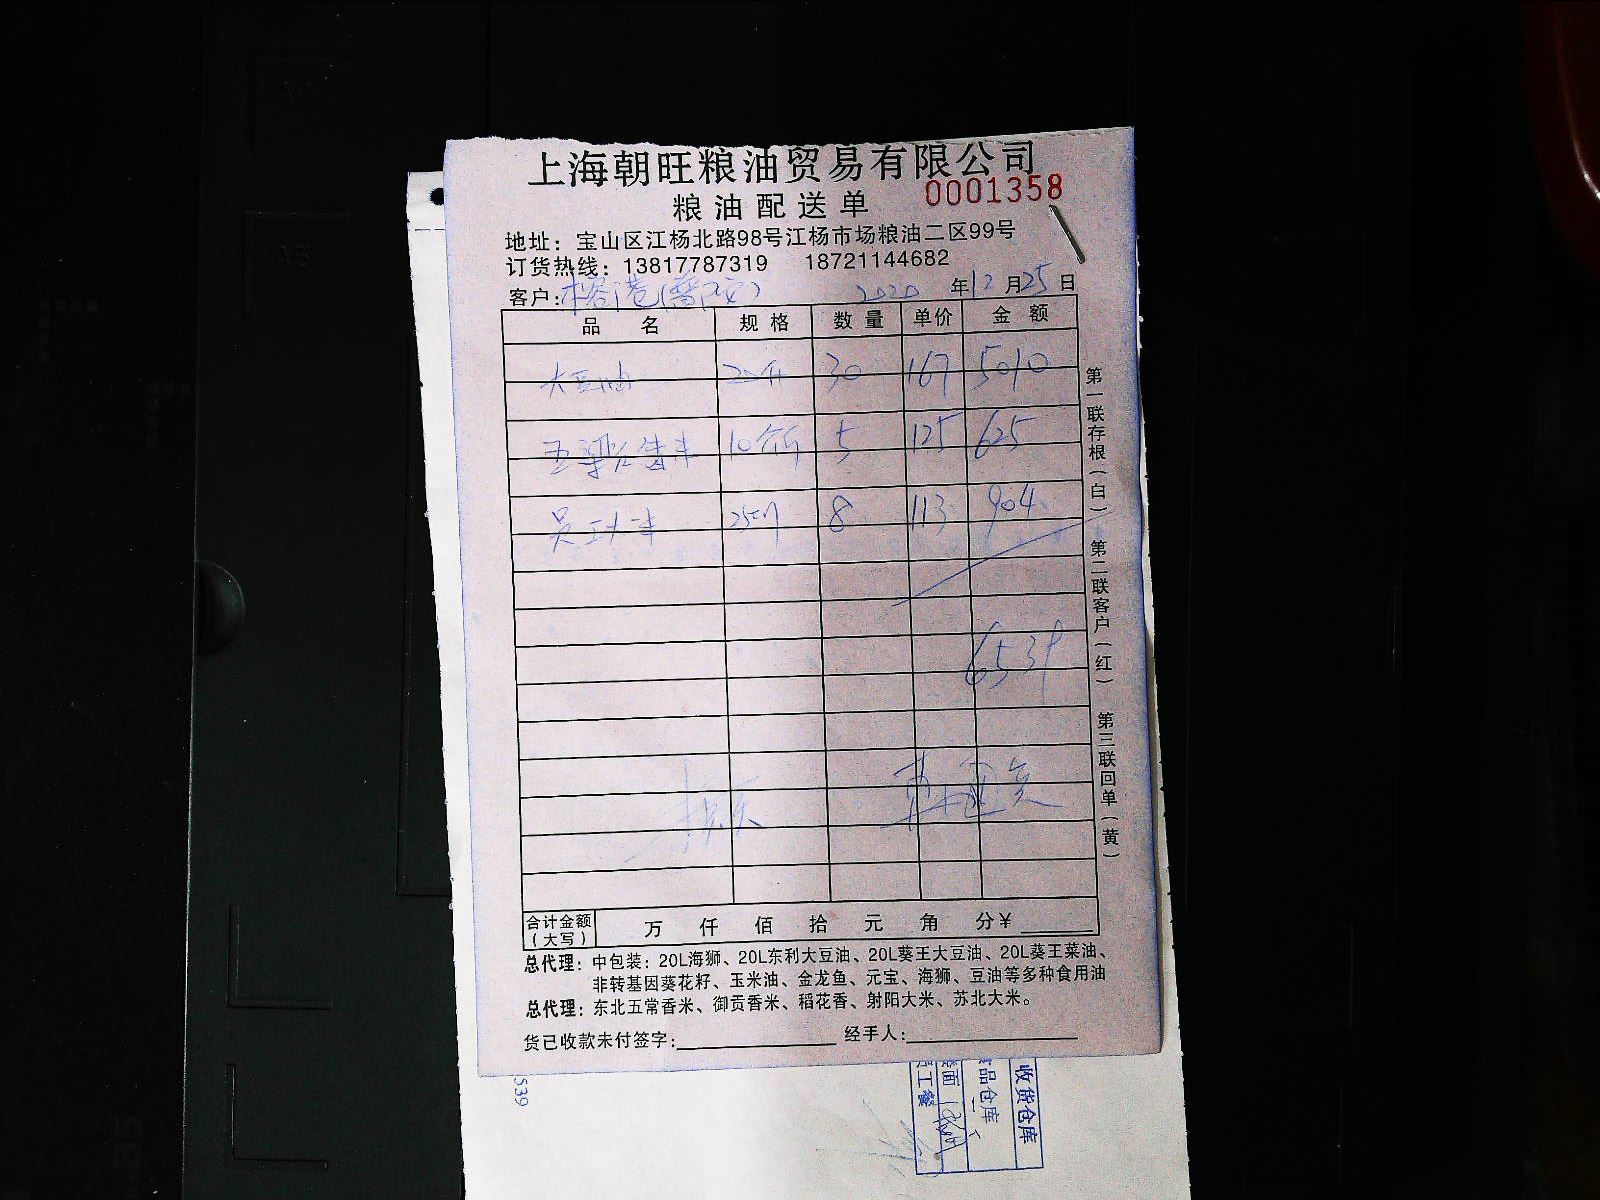 上海朝旺粮油贸易有限公司
0001358
粮油配送单
地址：宝山区江杨北路98号江杨市场粮油二区99号
订货热线：13817787319 18721144682
客户： 2020 年 12 月 25 日
品 名 规 格 数 量 单价 金 额
大豆油 20升 30 167 5010
10公斤 5 125 625
员工大米 25 8 113 904
6539
第一联存根（白） 第二联客户（红） 第三联回单（黄）
合计金额（大写） 万 仟 佰 拾 元 角 分￥
总代理：中包装：20L海狮、20L东利大豆油、20L葵王大豆油、20L葵王菜油、
非转基因葵花籽、玉米油、金龙鱼、元宝、海狮、豆油等多种食用油
总代理：东北五常香米、御贡香米、稻花香、射阳大米、苏北大米。
货已收款未付签字： 经手人：
539
收货仓库
品仓库
面
员工餐